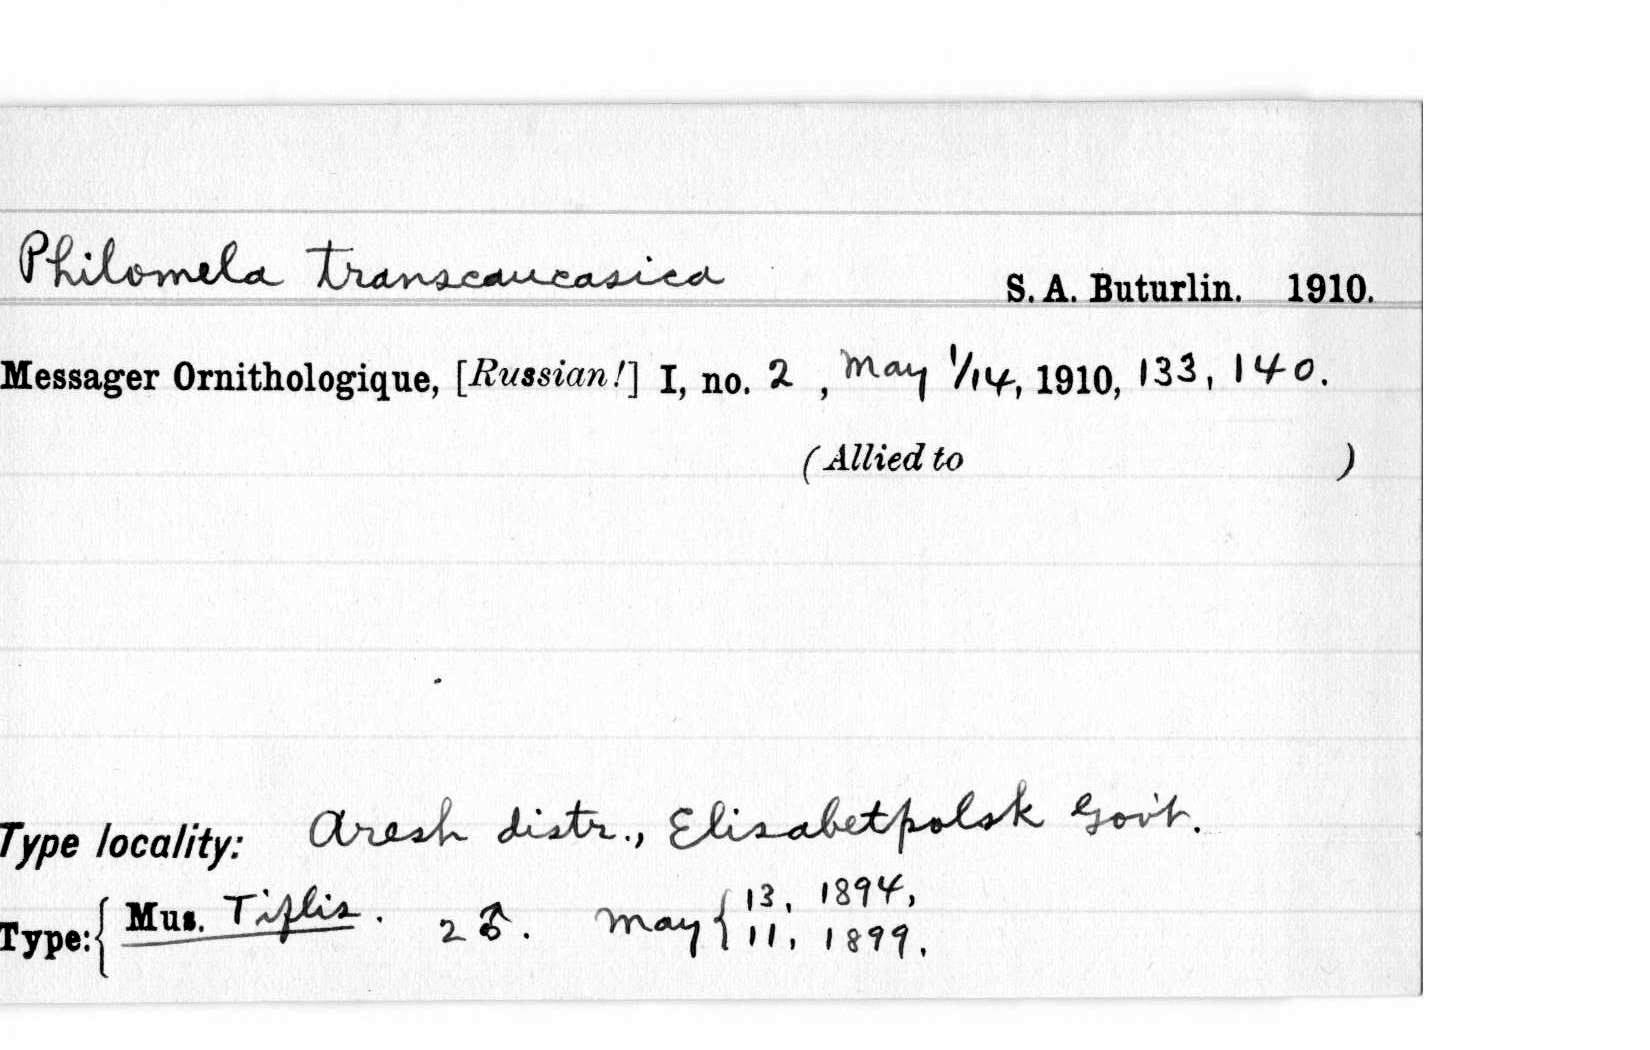 Philomela transcaucasica S. A. Buturlin. 1910.
Messager Ornithologique, [Russian!] I, no. 2, May 1/14, 1910, 133, 140.
(Allied to )
Type locality: Aresh distr., Elisabetpolsk Gov't.
Type: { Mus. Tiflis. 2 ♂. May { 13, 1894,
11, 1899.